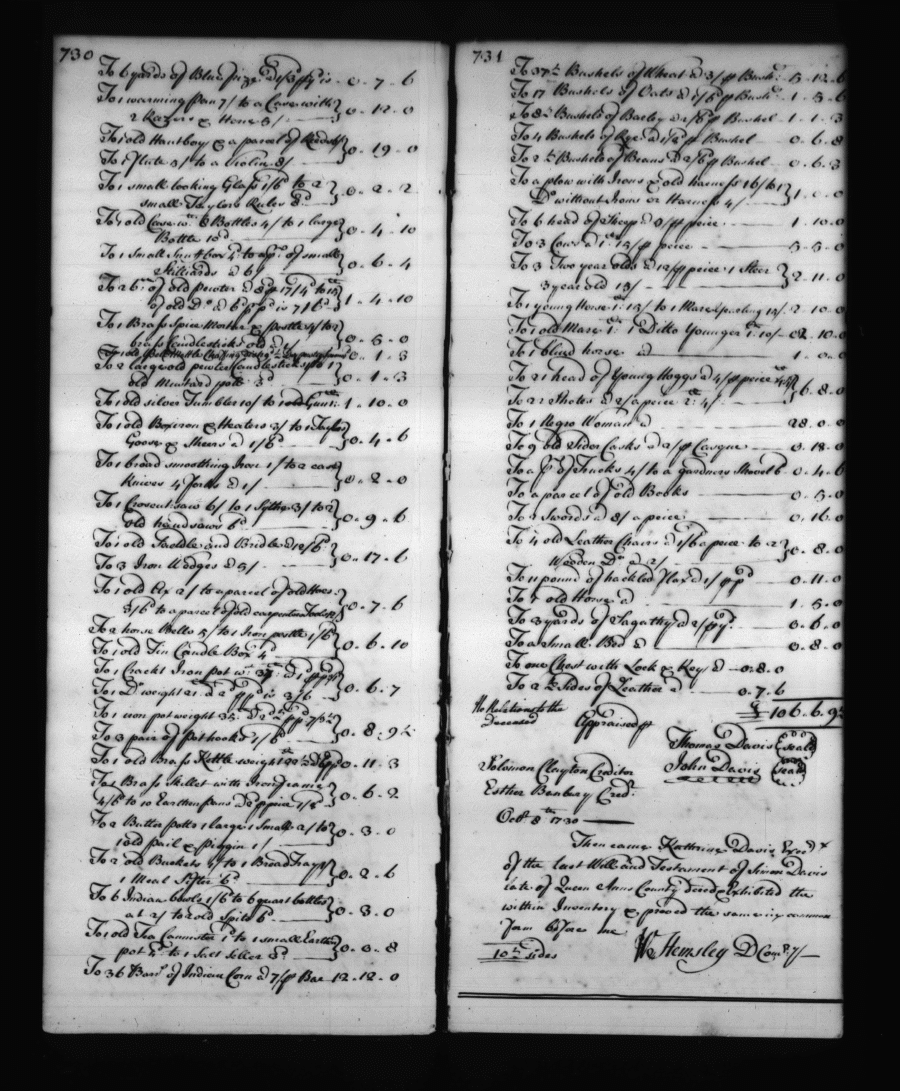 730
To 6 yards of Blue frize @ 1/3 p yd is - 0 - 7 - 6
To 1 warming Pan 7/ to a Case with
2 Razors & Hone 5/ - 0 - 12 - 0
To 1 old Hautboy & a parcel of
To 1 flute 3/ to a violin 8/ 0 - 19 - 0
To 1 small looking Glass 1/6d to 2
small Taylors Rules 8d 0 - 2 - 2
To 1 old Case wth 8 Bottles 4/ to 1 large
Bottle 10d 0 - 4 - 10
To 1 Small box 4d to a pr of small
Stilliards @ 6/ 0 - 6 - 4
To 26 of old pewter @ 8d p 17/4d to
of old Do @ 6d p is 7/6d 1 - 4 - 10
To 1 Brass Spice Morter & pestle 4/ to 2
brass Candlesticks old @ 1/ 0 - 5 - 0
0 - 1 - 3
To 2 large old pewter Candlesticks to 1
old Mustard pott 3d 0 - 1 - 3
To 1 old silver Tumbler 10/ to 1 old Gun 1 - 10 - 0
To 1 old Box iron & Heaters 3/ to 1 Taylors
Goose & Sheers @ 1/6d 0 - 4 - 6
To 1 broad smoothing Iron 1/ to 2 case
Knives 4 forks @ 1/ 0 - 2 - 0
To 1 Croscut saw 6/ to 1 Sythe 3/ to 2
old handsaws 6d 0 - 9 - 6
To 1 old Saddle and Bridle @ 12/6d
To 3 Iron Wedges @ 5/ 0 - 17 - 6
To 1 old 2/ to a parcel of old Hoes
3/6d to a parcel of old carpenters Tools 0 - 7 - 6
To 2 horse Bells 5/ to 1 Iron pestle 1/6d
To 1 old Tin Candle Box 4d 0 - 6 - 10
To 1 Crackt Iron pot wt 37
To 1 Do weight 21 @ 2d p is 3/6 0 - 6 - 7
To 1 iron pot weight 35
To 3 pair of pot hooks 1/6d 0 - 8 - 9½
To 1 old Brass Kettle weight 0 - 11 - 3
To 1 Brass Skillet with Iron frame
4/6d to 10 Earthen pans @ peice 1/8d 0 - 6 - 2
To 2 Butter potts 1 large 1 small 2/ to
1 old pail & piggin 1/ 0 - 3 - 0
To 2 old Buckets to 1 Broad Tray
1 Meal Sifter 6d 0 - 2 - 6
To 6 Indian bowls 1/6 to 6 quart bottles
at 2/ to 2 old Spits 6d 0 - 3 - 0
To 1 old Tea Cannister 1d to 1 small Earthen
pot 4d to 1 Salt Seller 3d 0 - 0 - 8
To 36 Barrs of Indian Corn @ 7/ p Bar 12 - 12 - 0
731
To 37½ Bushels of Wheat @ 3/ p Bushl 5 - 12 - 6
To 17 Bushels of Oats @ 1/6d p Bushl 1 - 5 - 6
To 8½ Bushels of Barley @ 2/6 p Bushel 1 - 1 - 3
To 4 Bushels of Rye @ 1/8d p Bushel 0 - 6 - 8
To 2½ Bushels of Beans @ 2/6 p Bushel 0 - 6 - 3
To a plow with Irons & old harness 16/ to 1
Do without Irons or Harness 4/ 1 - 0 - 0
To 6 head of Sheep @ 5/ p peice 1 - 10 - 0
To 3 Cows @ 1: 15/ p peice 5 - 5 - 0
To 3 Two year olds @ 12/ p peice 1 Steer
3 year old 15/ 2 - 11 - 0
To 1 young Horse 1: 15/ to 1 Mare yearling 15/ 2 - 10 - 0
To 1 old Mare 1: 1 Ditto Younger 1: 10/ 02 - 10 - 0
To 1 blind horse @ 1 - 0 - 0
To 21 head of Young Hoggs @ 4/ p peice
To 22 Shotes @ 2/ a peice 2: 4/ 6 - 8 - 0
To 1 Negro Woman @ 28 - 0 - 0
To 9 old Sider Casks @ 2/ p Casque 0 - 18 - 0
To a pr of Trucks 4/ to a gardners Shovel 6 0 - 4 - 6
To a parcel of old Books 0 - 5 - 0
To 2 Swords @ 8/ a peice 0 - 16 - 0
To 4 old Leather Chairs @ 1/6 a peice to 2
Wooden Do @ 2/ 0 - 8 - 0
To 11 pound of hackled Flax @ 1/ p pd 0 - 11 - 0
To 1 old Horse @ 1 - 5 - 0
To 3 yards of Sagathy @ 2/ p yd 0 - 6 - 0
To a Small Bed @ 0 - 8 - 0
To one Chest with Lock & Key @ 0 - 8 - 0
To 2½ Sides of Leather @ 0 - 7 - 6
£ 106 - 6 - 9½
No Relations to the
Deceased
Appraised p
Thomas Davis (seal)
John Davis (seal)
Solomon Clayton Creditor
Esther Banbury Credr
Octr 8th 1730
Then came Katherine Davis Exrx
of the last Will and Testament of Simon Davis
late of Queen Anns County deced & Exhibited the
within Inventory & proved the same in common
form before me
10½ sides
Wm Hemsley D Comry